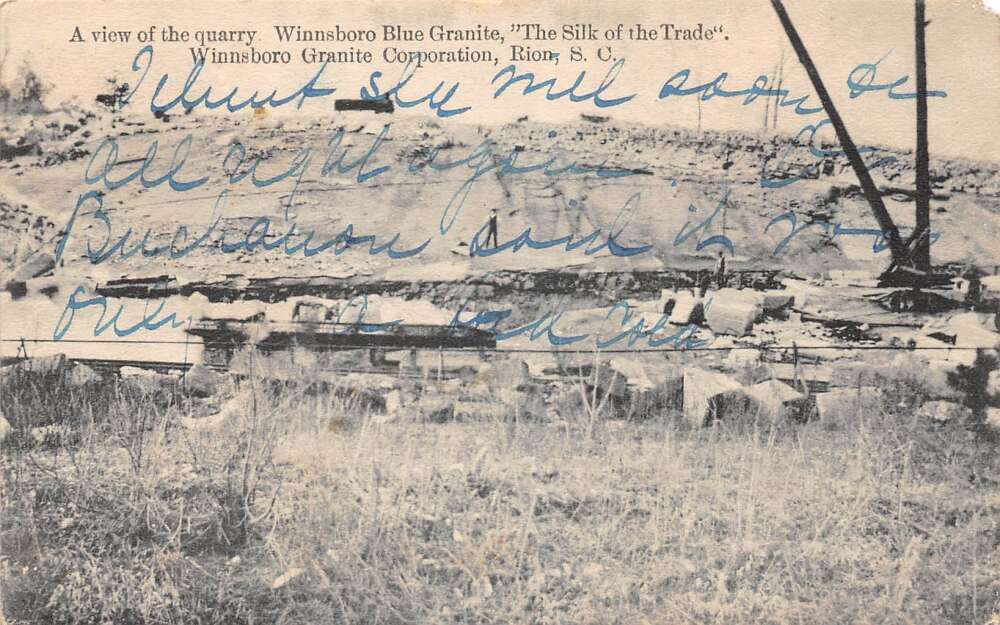 A view of the quarry. Winnsboro Blue Granite, "The Silk of the Trade".
Winnsboro Granite Corporation, Rion, S. C.
she will soon be
all right again. Dr
Buchanon said it was
only a bad cold